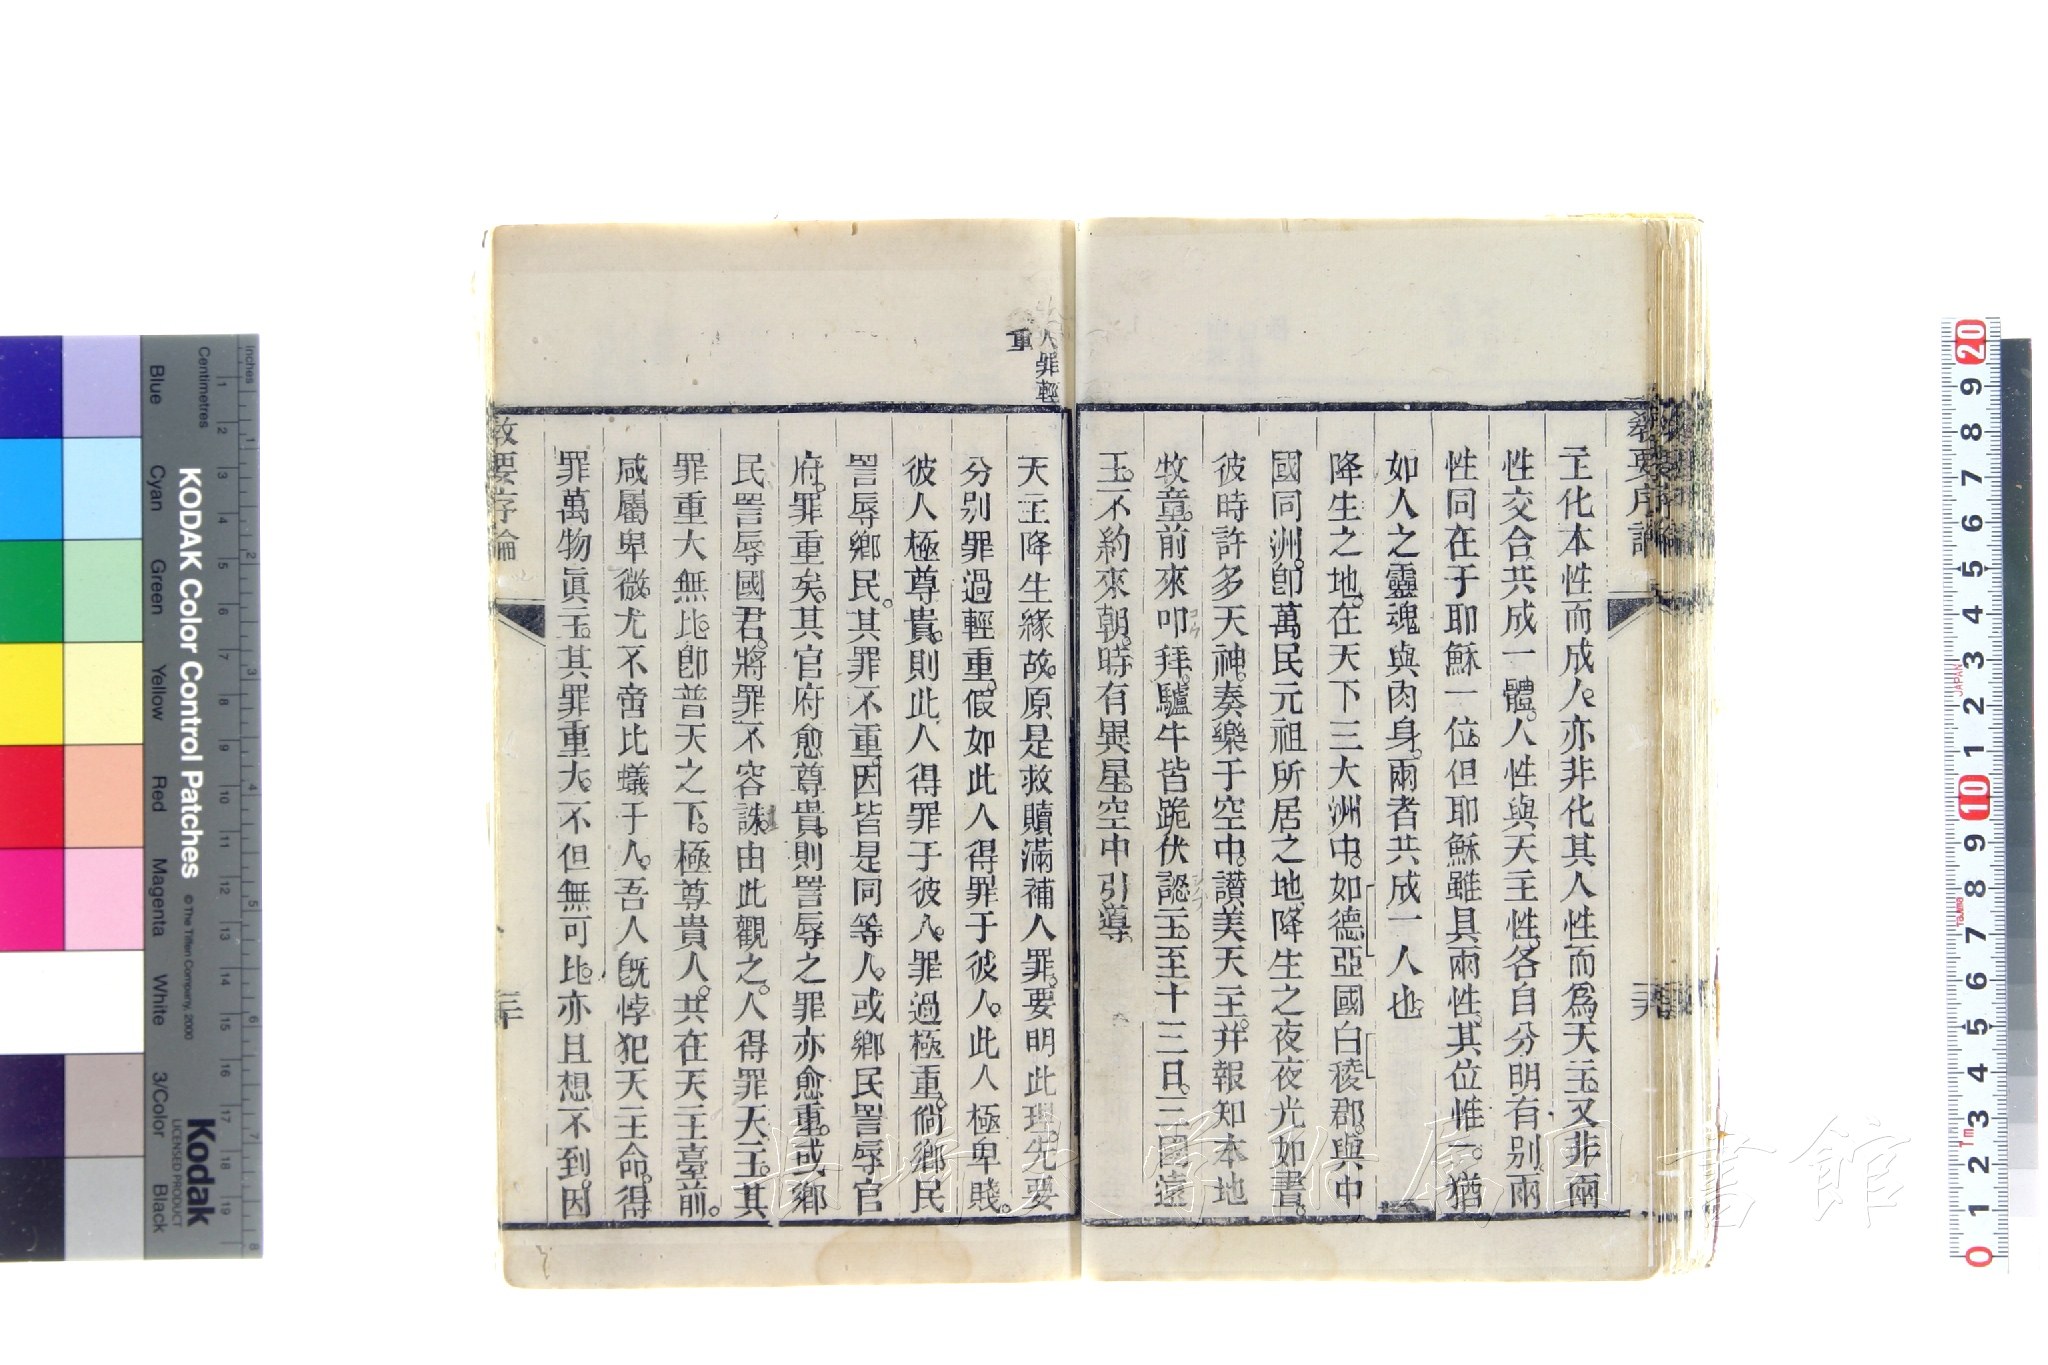 主化本性而成人。亦非化其人性而爲天主。又非兩
性交合。共成一體。人性與天主性。各自分明有別。兩
性同在于耶穌一位。但耶穌雖具兩性。其位惟一。猶
如人之靈魂與肉身。兩者共成一人也。
降生之地。在天下三大洲中。如德亞國白稜郡。與中
國同洲。卽萬民元祖所居之地。降生之夜。夜光如晝。
彼時許多天神。奏樂于空中。讃美天主。幷報知本地
牧童。前來叩拜。驢牛皆跪伏認主。至十三日。三國遠
王。不約來朝。時有異星。空中引導。
人罪輕
重
天主降生緣故。原是救贖滿補人罪。要明此理。先要
分别罪過輕重。假如此人得罪于彼人。此人極卑賤。
彼人極尊貴。則此人得罪于彼人。罪過極重。倘鄉民
詈辱鄉民。其罪不重。因皆是同等人。或鄉民詈辱官
府。罪重矣。其官府愈尊貴。則詈辱之罪亦愈重。或鄉
民詈辱國君。將罪不容誅。由此觀之。人得罪天主。其
罪重大無比。卽普天之下。極尊貴人。共在天主臺前。
咸屬卑微。尤不啻比蟻于人。吾人旣悖犯天主命。得
罪萬物眞主。其罪重大。不但無可比。亦且想不到。因
教要序論
二十
Centimetres
Inches
Blue
Cyan
Green
Yellow
Red
Magenta
White
3/Color
Black
KODAK Color Control Patches
© The Tiffen Company, 2000
Kodak
LICENSED PRODUCT
長崎大学附属図書館